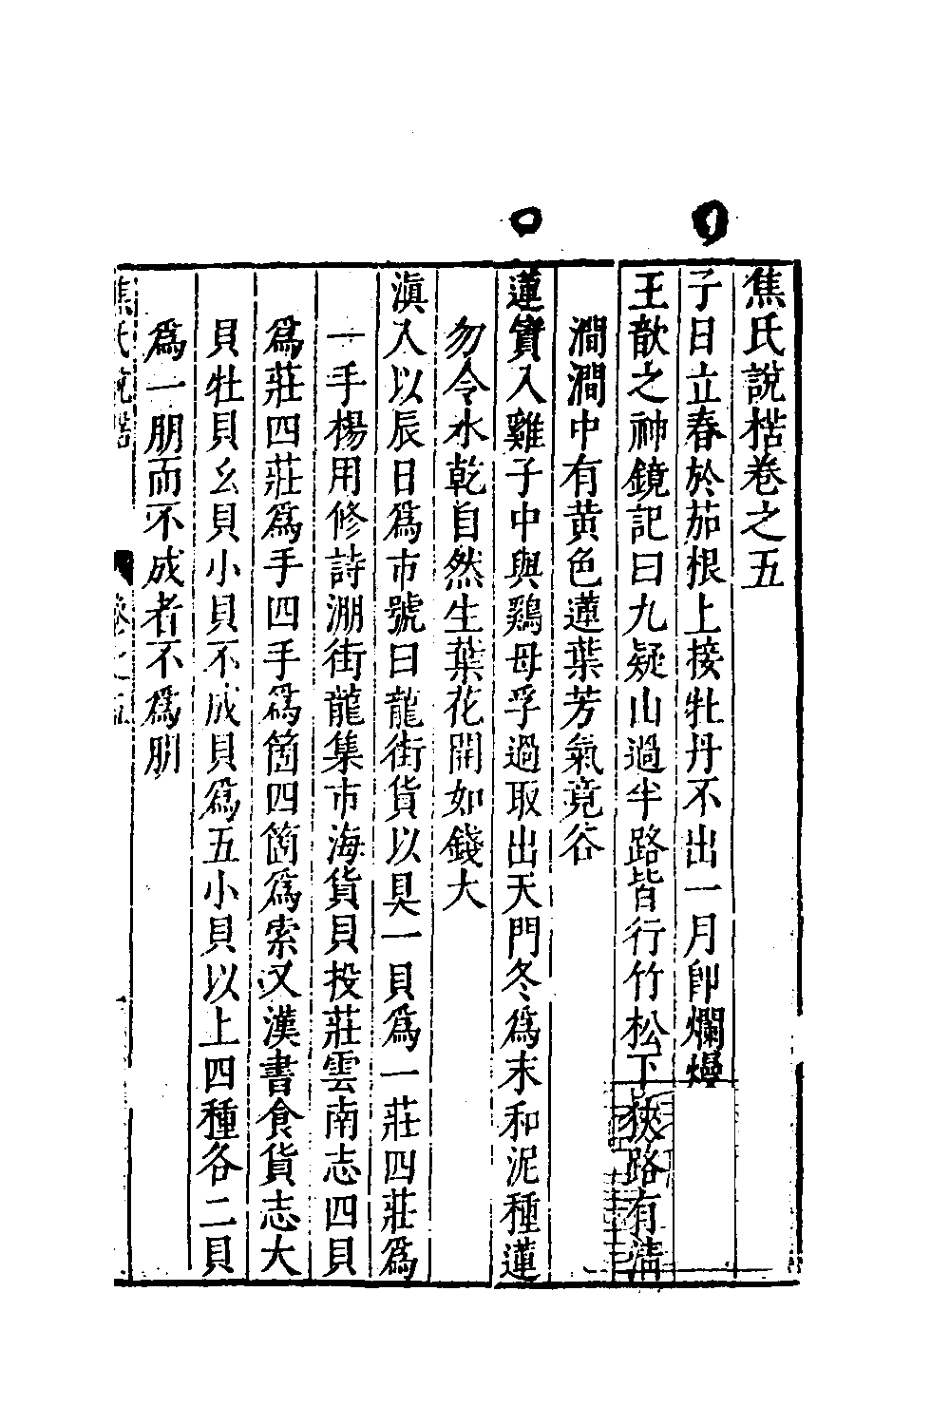 焦氏說楛卷之五
子日立春於茄根上接牡丹不出一月卽爛熳
王歆之神鏡記曰九疑山過半路皆行竹松下狹路有淸
澗澗中有黃色蓮葉芳氣竟谷
蓮實入雞子中與鷄母孚過取出天門冬爲末和泥種蓮
勿令水乾自然生葉花開如錢大
滇人以辰日爲市號曰龍街貨以貝一貝爲一莊四莊爲
一手楊用修詩淜街龍集市海貨貝投莊雲南志四貝
爲莊四莊爲手四手爲箇四箇爲索又漢書食貨志大
貝牡貝幺貝小貝不成貝爲五小貝以上四種各二貝
爲一朋而不成者不爲朋
焦氏說楛 卷之五